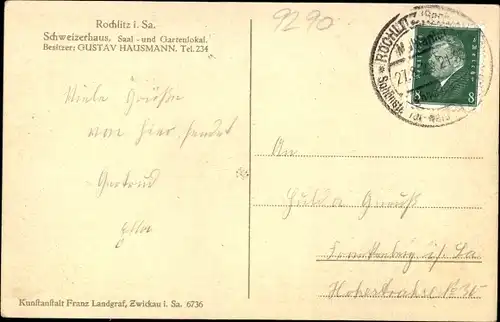 Rochlitz i. Sa.
Schweizerhaus, Saal- und Gartenlokal.
Besitzer: GUSTAV HAUSMANN. Tel. 234
9290
ROCHLITZ
8 8
Viele Grüße
von hier sendet
Gertrud
An
Hulda
Frankenberg i/Sa
Kunstanstalt Franz Landgraf, Zwickau i. Sa. 6736